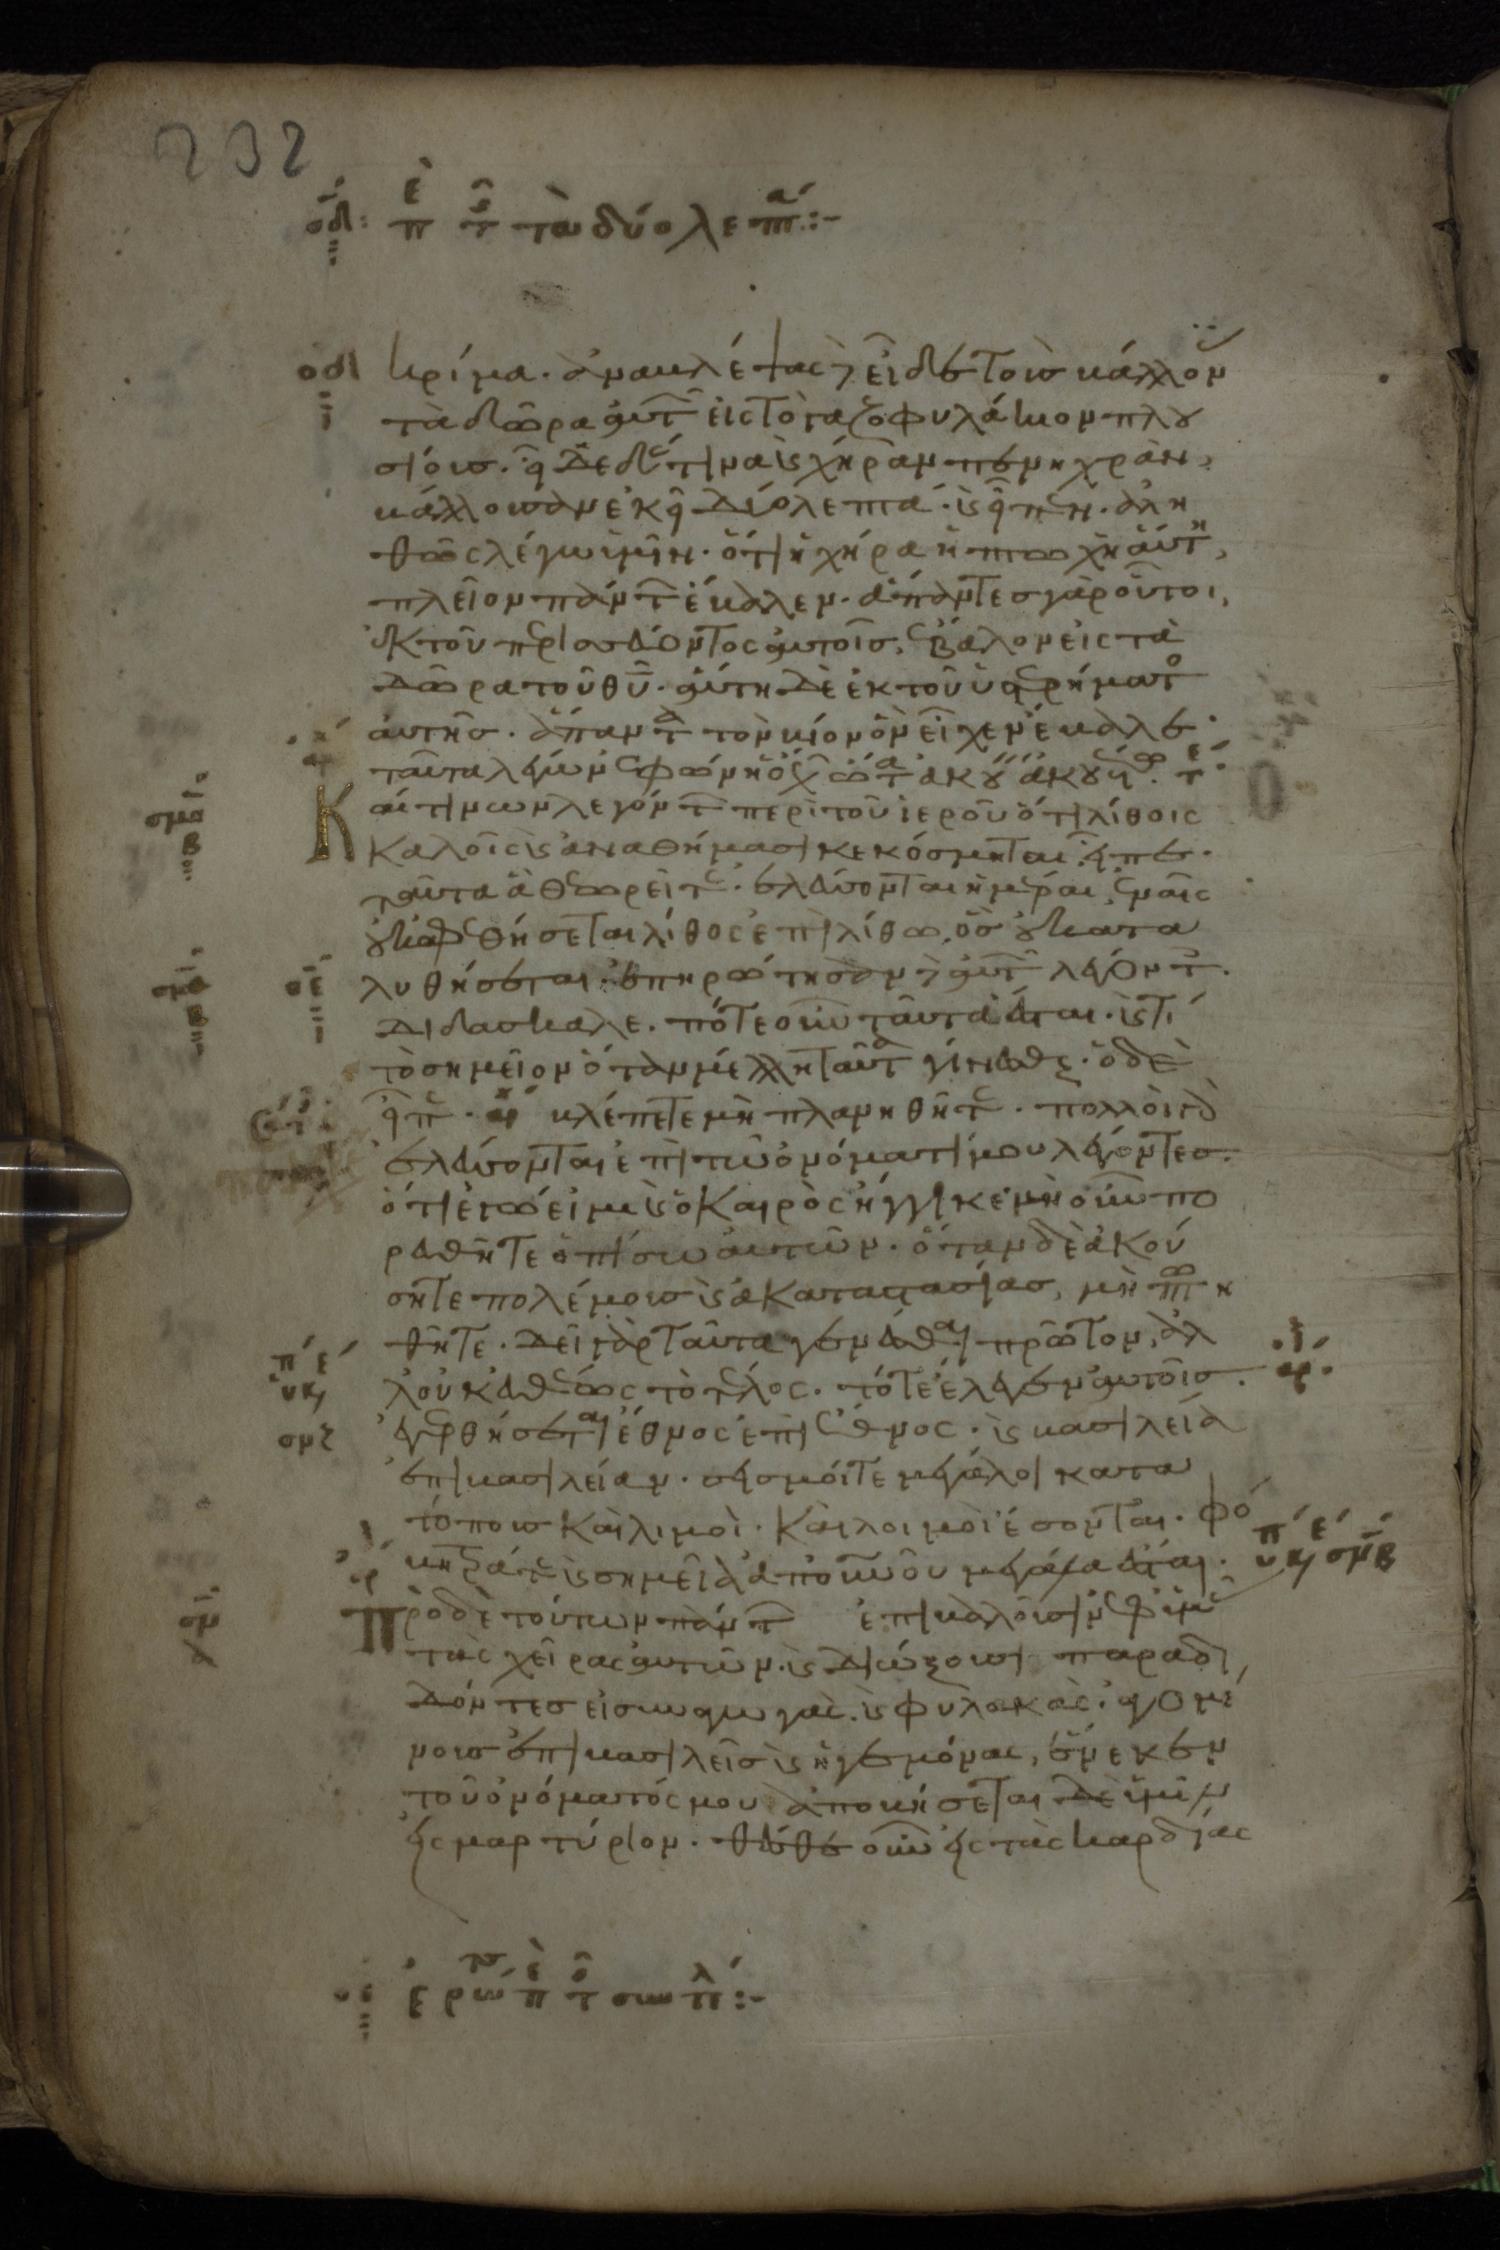 232
οδ: πε τ τὰ δύο λεπτά:-
οδ κρίμα. ἀναβλέψας δὲ εἶδε τοὺς βάλλον
τὰ δῶρα αὐτῶν εἰς τὸ γαζοφυλάκιον πλου
σίους. εἶδε δέ τινα καὶ χήραν πενιχρὰν,
βάλλουσαν ἐκεῖ δύο λεπτά. καὶ εἶπεν. ἀλη
θῶς λέγω ὑμῖν. ὅτι ἡ χήρα ἡ πτωχὴ αὕτη,
πλεῖον πάντων ἔβαλεν. ἅπαντες γὰρ οὗτοι,
ἐκ τοῦ περισσεύοντος αὐτοῖς, ἔβαλον εἰς τὰ
δῶρα τοῦ θυ. αὕτη δὲ ἐκ τοῦ ὑστερήματος
αὐτῆς. ἅπαντα τὸν βίον ὃν εἶχεν ἔβαλε.
ταῦτα λέγων ἐφώνει ὁ ἔχων ὦτα ἀκούειν ἀκουέτω. τε
Καί τινων λεγόντων περὶ τοῦ ἱεροῦ ὅτι λίθοις
καλοῖς καὶ ἀναθήμασι κεκόσμηται. εἶπε.
ταῦτα ἃ θεωρεῖτε. ἐλεύσονται ἡμέραι, ἐν αἷς
οὐκ ἀφεθήσεται λίθος ἐπὶ λίθω, ὃς οὐ κατα
λυθήσεται. ἐπηρώτησαν δὲ αὐτὸν λέγοντες.
διδάσκαλε. πότε οὖν ταῦτα ἔσται. καὶ τί
τὸ σημεῖον ὅταν μέλλη ταῦτα γίνεσθαι. ὁ δὲ
εἶπε. βλέπετε μὴ πλανηθῆτε. πολλοὶ γὰρ
ἐλεύσονται ἐπὶ τῶ ὀνόματί μου λέγοντες.
ὅτι ἐγώ εἰμι καὶ ὁ καιρὸς ἤγγικε μὴ οὖν πο
ρευθῆτε ὀπίσω αὐτῶν. ὅταν δὲ ἀκού
σητε πολέμους καὶ ἀκαταστασίας, μὴ πτοη
θῆτε. δεῖ γὰρ ταῦτα γενέσθαι πρῶτον, ἀλ
λ οὐκ εὐθέως τὸ τέλος. τότε ἔλεγεν αὐτοῖς.
ἐγερθήσεται ἔθνος ἐπὶ ἔθνος. καὶ βασιλεία
ἐπὶ βασιλείαν. σεισμοί τε μεγάλοι κατὰ
τόπους καὶ λιμοὶ. καὶ λοιμοὶ ἔσονται. φό
βητρά τε καὶ σημεῖα ἀπ οὐνοῦ μεγάλα ἔσται.
Πρὸ δὲ τούτων πάντων ἐπιβαλοῦσιν ἐφ ὑμᾶς
τὰς χεῖρας αὐτῶν. καὶ διώξουσι παραδι
δόντες εἰς συναγωγὰς. καὶ φυλακὰς. ἀγομέ
νους ἐπὶ βασιλεῖς καὶ ἡγεμόνας, ἕνεκεν
τοῦ ὀνόματός μου ἀποβήσεται δὲ ὑμῖν
εἰς μαρτύριον. θέσθε οὖν εἰς τὰς καρδίας
οε ἐρώ πε τ συντελ:-